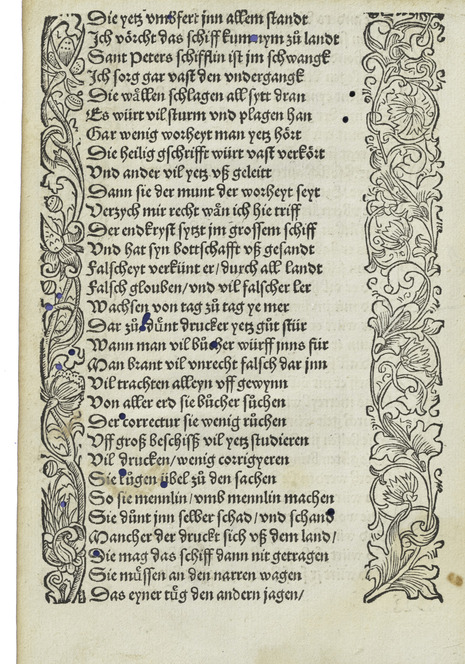 Die yetz vmbfert jnn allem standt
Jch vörcht das schiff kum nym zů landt
Sant Peters schifflin ist jm schwangk
Jch sorg gar vast den vndergangk
Die wällen schlagen all sytt dran
Es würt vil sturm vnd plagen han
Gar wenig worheyt man yetz hört
Die heilig gschrifft würt vast verkört
Vnd ander vil yetz vß geleitt
Dann sie der munt der worheyt seyt
Verzych mir recht wän ich hie triff
Der endkryst sytzt jm grossem schiff
Vnd hat syn bottschafft vß gesandt
Falscheyt verkünt er/durch all landt
Falsch glouben/vnd vil falscher ler
Wachsen von tag zů tag ye mer
Dar zů důnt drucker yetz gůt stür
Wann man vil bůcher würff jnns für
Man brant vil vnrecht falsch dar jnn
Vil trachten alleyn vff gewynn
Von aller erd sie bůcher sůchen
Der correctur sie wenig růchen
Vff groß beschisß vil yetz studieren
Vil drucken/wenig corrigyeren
Sie lůgen übel zů den sachen
So sie mennlin/vmb mennlin machen
Sie důnt jnn selber schad/vnd schand
Mancher der druckt sich vß dem land/
Die mag das schiff dann nit getragen
Sie můssen an den narren wagen
Das eyner tůg den andern jagen/